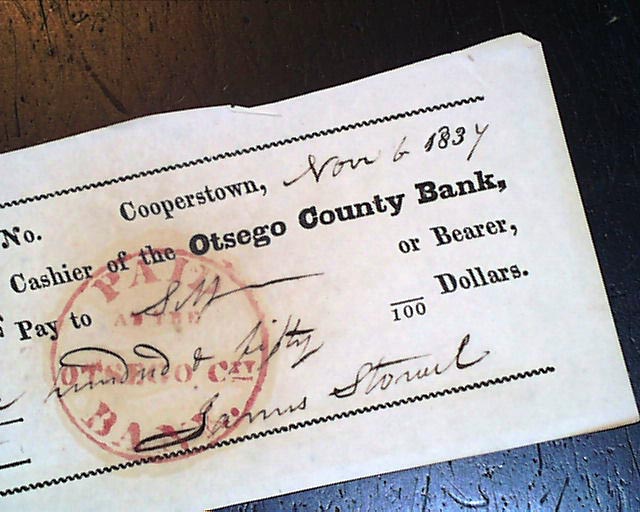 No. Cooperstown, Nov 6 1834
Cashier of the Otsego County Bank,
Pay to Self or Bearer,
hundred & fifty /100 Dollars.
James Stowel
PAID
AT THE
OTSEGO CTY
BANK.